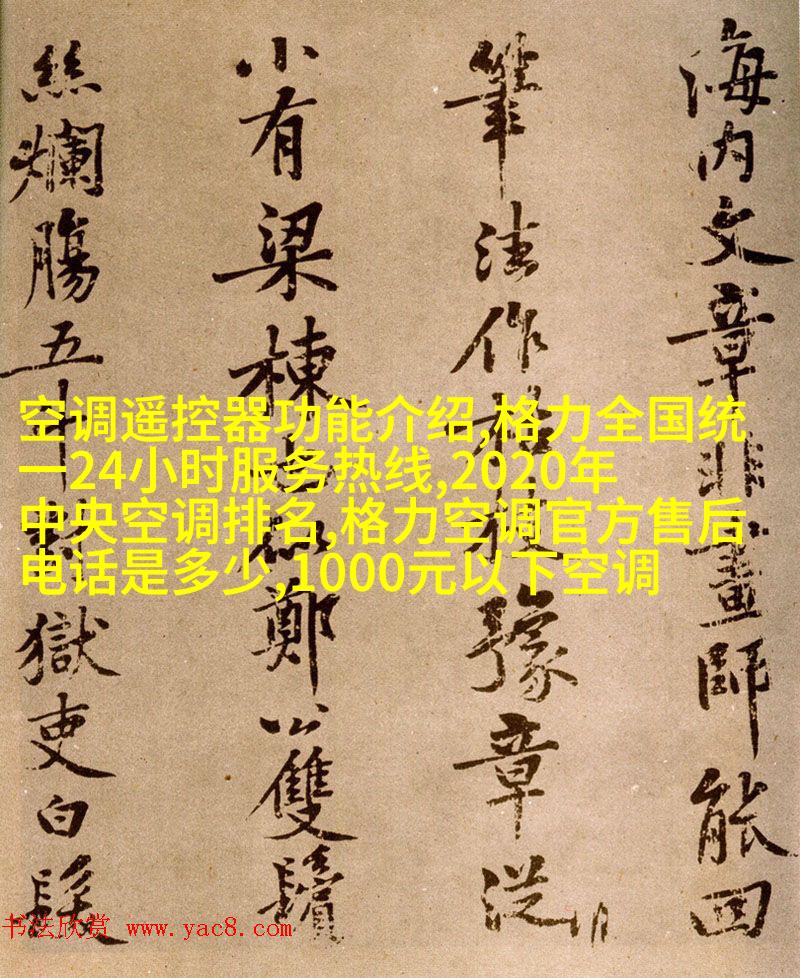 海内文章非畫師能回
筆法作枯枝豫章從
小有梁棟也似鄭公雙鬢
絲爛腸五斗對獄吏白髮
空调遥控器功能介绍,格力全国统
一24小时服务热线,2020年
中央空调排名,格力空调官方售后
电话是多少,1000元以下空调
书法欣赏 www.yac8.com